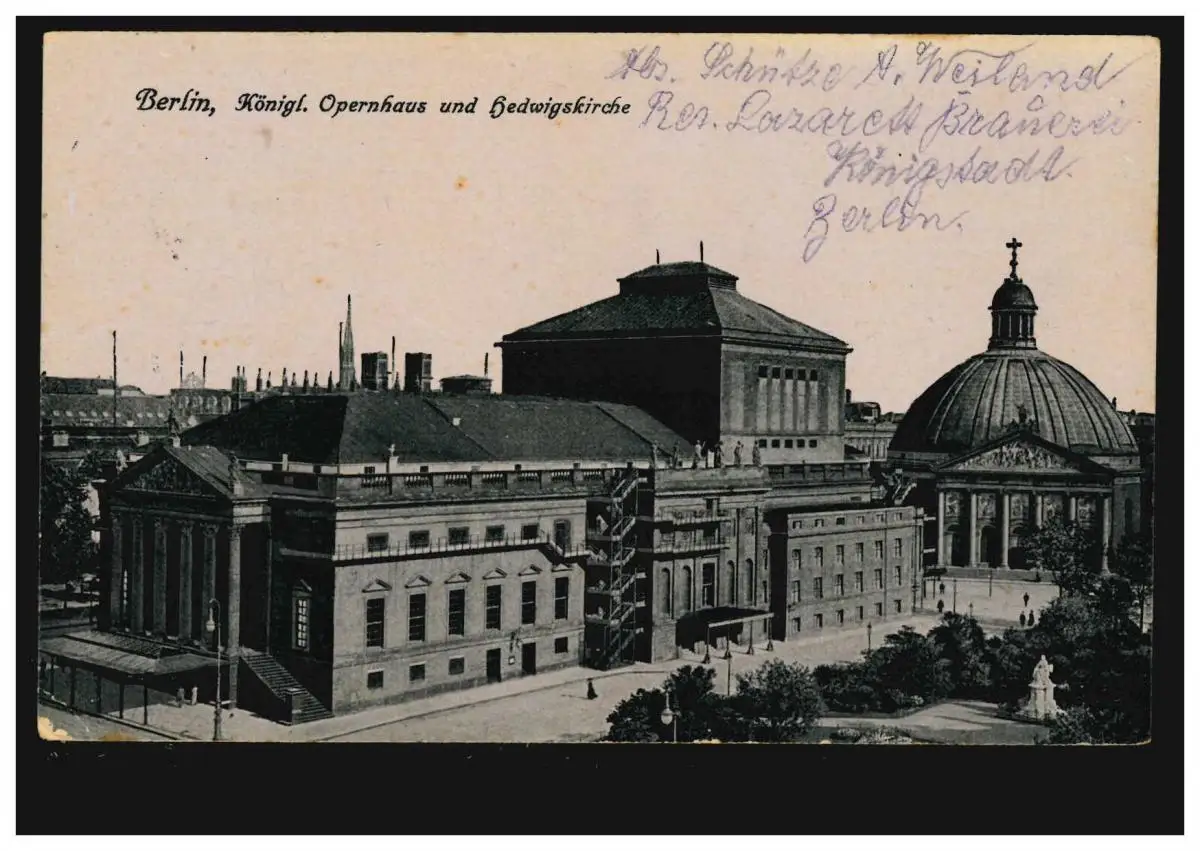 Berlin, Königl. Opernhaus und Hedwigskirche
Abs. Schütze A. Weiland
Res. Lazarett Brauerei
Königstadt.
Berlin.